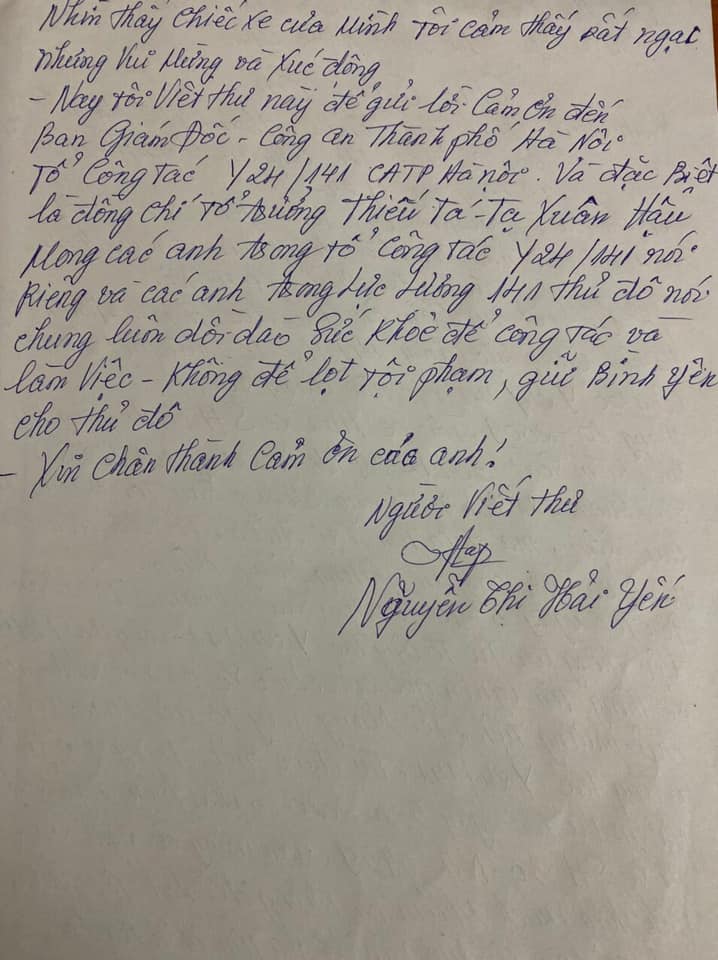 Nhìn thấy chiếc xe của mình tôi cảm thấy rất ngạc
nhưng vui mừng và xúc động
- Nay tôi viết thư này để gửi lời cảm ơn đến
Ban Giám Đốc - Công an Thành phố Hà Nội
Tổ Công tác Y24/141 CATP Hà nội. Và đặc Biệt
là đồng chí tổ trưởng Thiếu tá - Tạ Xuân Hậu
Mong các anh trong tổ công tác Y24/141 nói
Riêng và các anh trong lực lượng 141 thủ đô nói
chung luôn dồi dào sức khỏe để công tác và
làm việc - Không để lọt tội phạm, giữ Bình yên
cho thủ đô
- Xin chân thành cảm ơn các anh!
Người viết thư
Nguyễn Thị Hải Yến